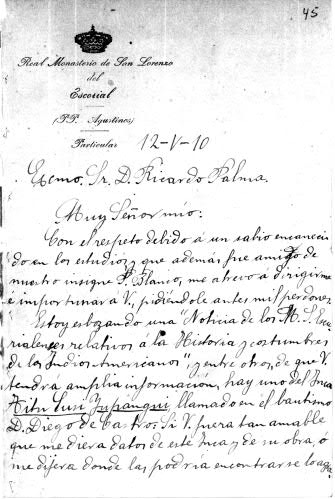 45
Real Monasterio de San Lorenzo
del
Escorial
(P.P. Agustinos)
Particular
12-V-10
Excmo. Sr. D. Ricardo Palma.
Muy Señor mio:
Con el respeto debido á un sabio encaneci
do en los estudios y que además fue amigo de
nuestro insigne P. Blanco, me atrevo á dirigirme
e importunar á V. pidiéndole antes mil perdones.
Estoy esbozando una "Noticia de los M.S. Escu
rialenses relativos a la Historia y costumbres
de los Indios Americanos" y entre otros, de que V.
tendra amplia información, hay uno del Inca
Titu Cusi Yupangui, llamado en el bautismo
D. Diego de Castro. Si V. fuera tan amable
que me diera datos de este Inca y de su obra, ó
me dijera donde las podria encontrar se lo agra